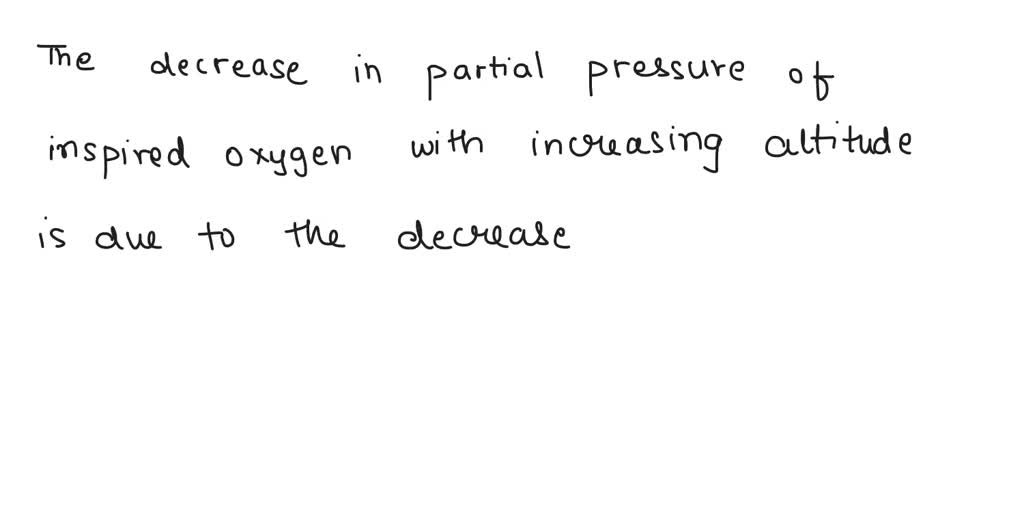 The decrease in partial pressure of
inspired oxygen with increasing altitude
is due to the decrease